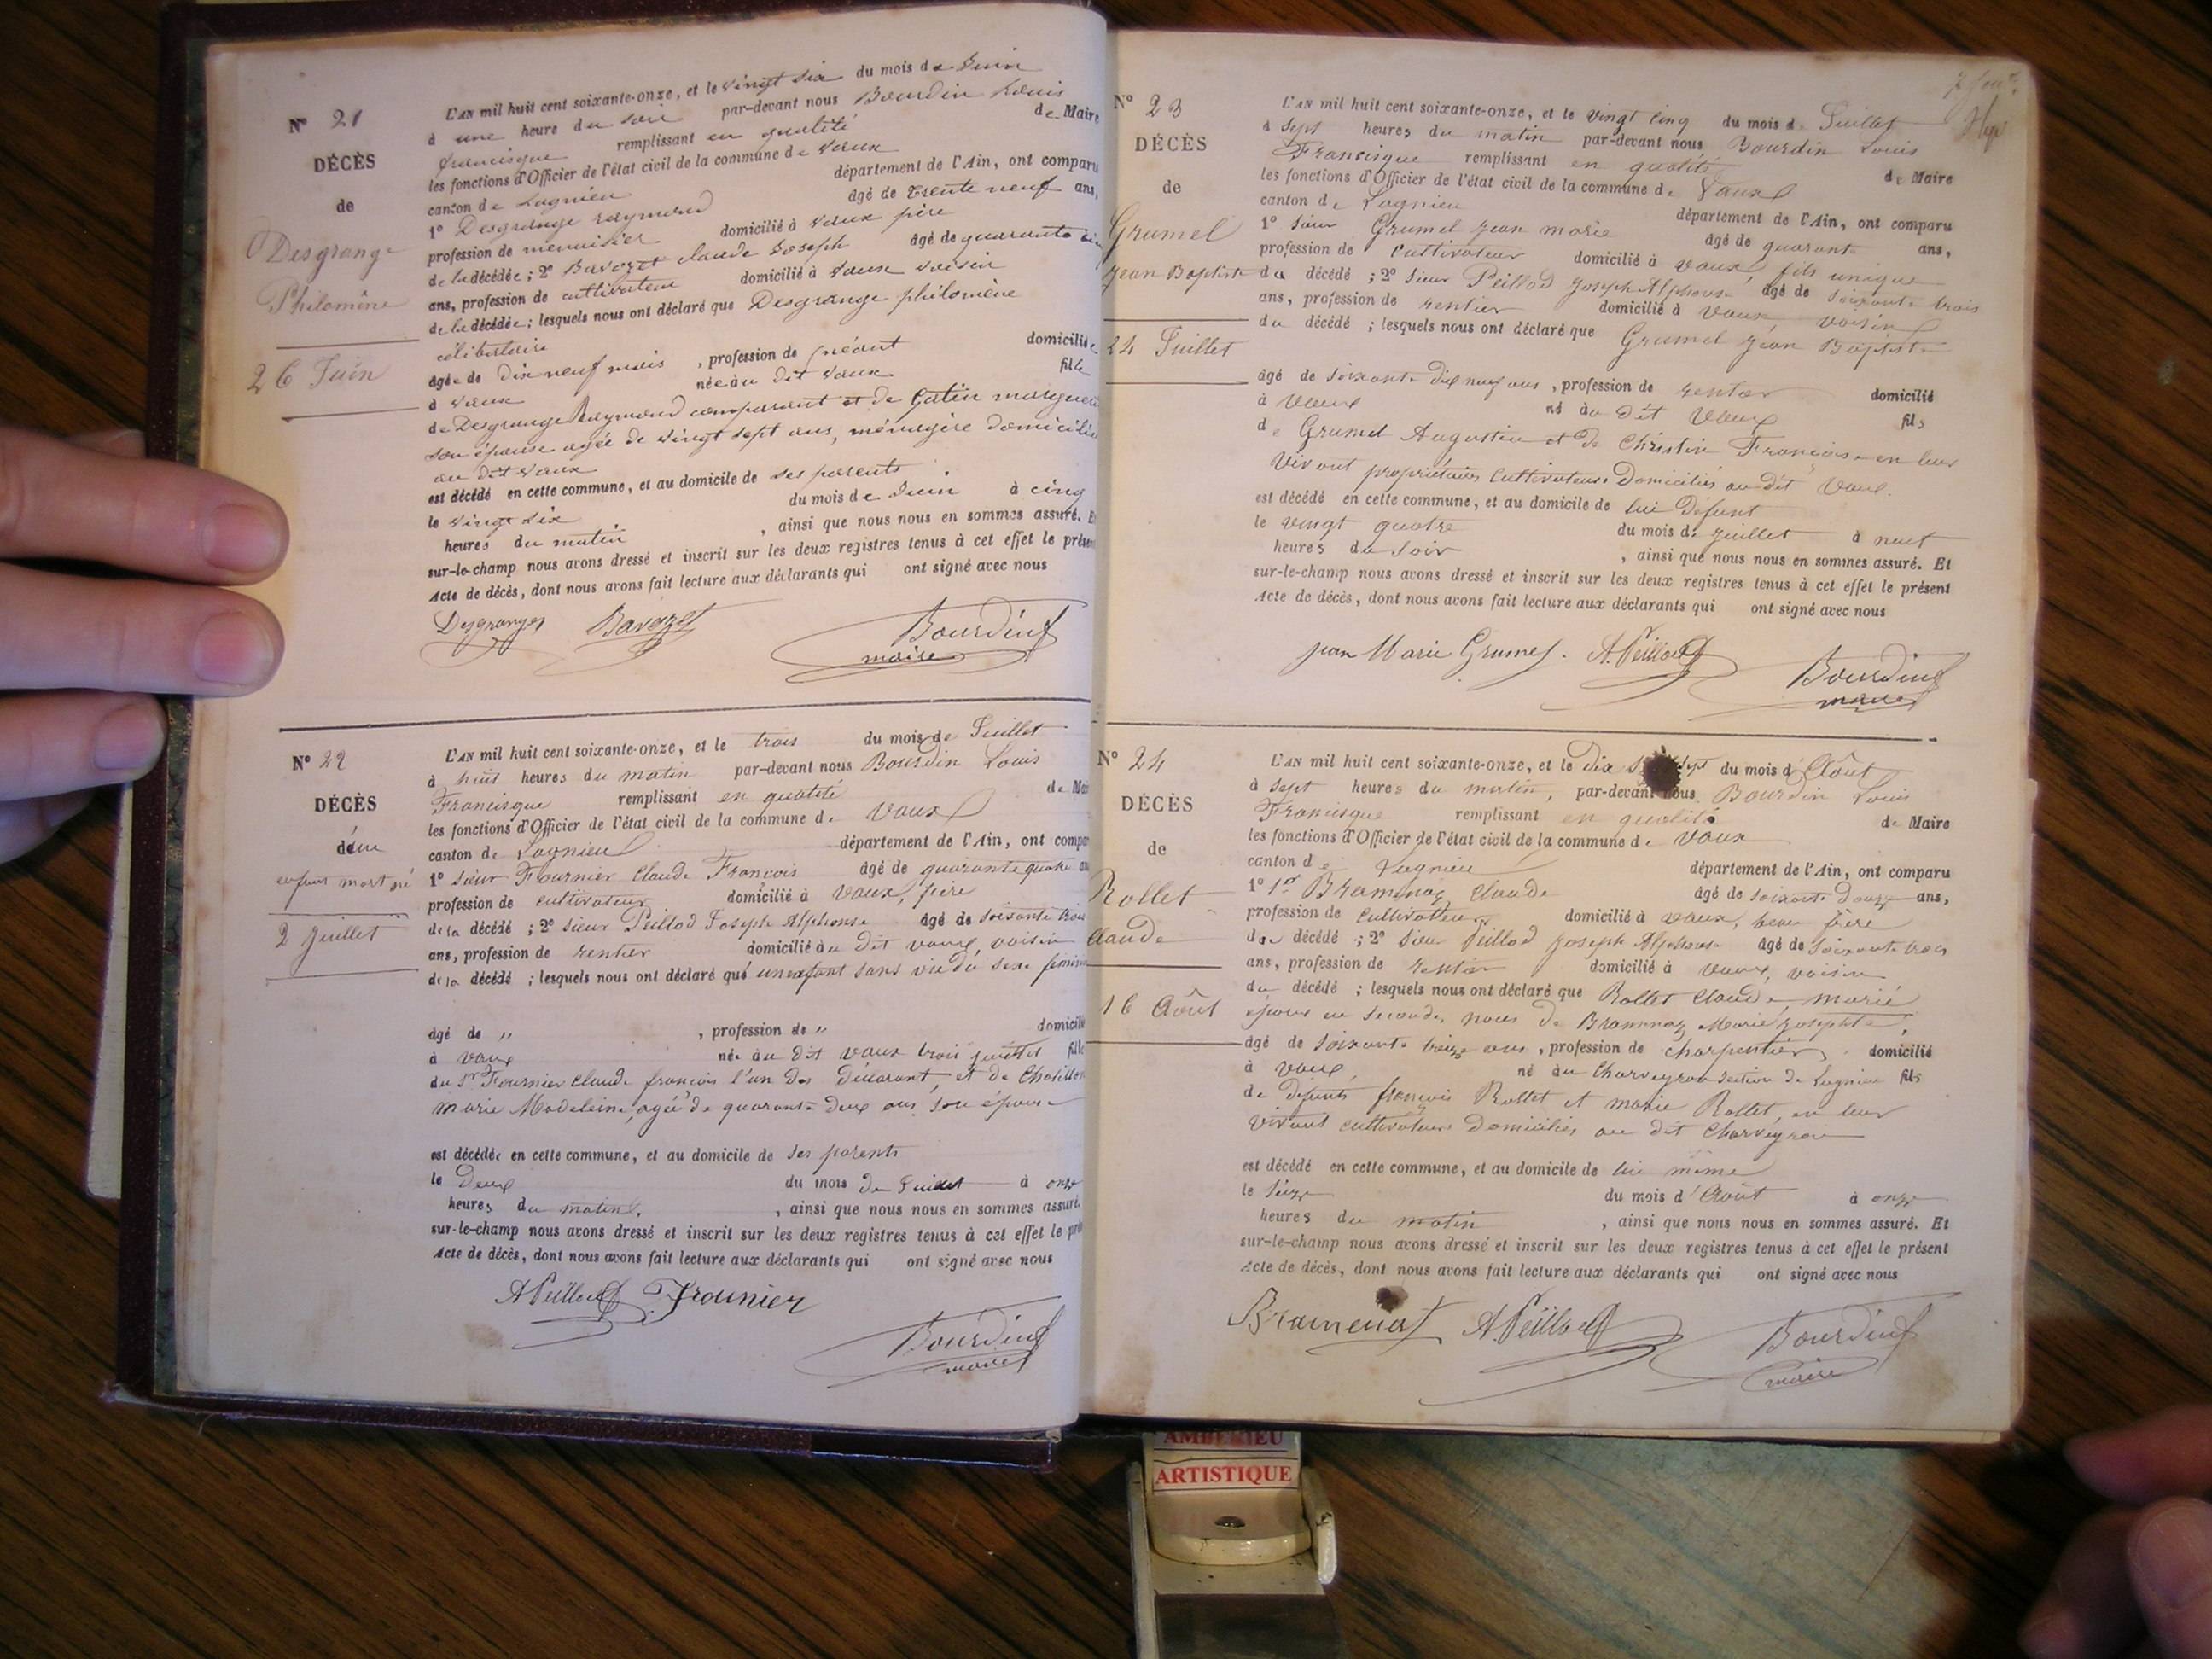 N° 21
DÉCÈS
de
Desgrange
Philomène
26 Juin
L'AN mil huit cent soixante-onze, et le vingt six du mois de Juin
à une heure du soir par-devant nous Bourdin Louis
francisque remplissant en qualité de Maire
les fonctions d'Officier de l'état civil de la commune de Vaux
canton de Lagnieu département de l'Ain, ont comparu
1° Desgrange Raymond âgé de trente neuf ans,
profession de menuisier domicilié à Vaux père
de la décédée ; 2° Bavozet claude Joseph âgé de quarante
ans, profession de cultivateur domicilié à Vaux voisin
de la décédée ; lesquels nous ont déclaré que Desgrange philomène
célibataire
âgée de dix neuf mois , profession de néant domiciliée
à Vaux née au dit Vaux fille
de Desgrange Raymond comparant et de Gatin
son épouse agée de vingt sept ans, ménagère domiciliée
au dit Vaux
est décédé en cette commune, et au domicile de ses parents
le vingt six du mois de Juin à cinq
heures du matin , ainsi que nous nous en sommes assuré. Et
sur-le-champ nous avons dressé et inscrit sur les deux registres tenus à cet effet le présent
Acte de décès, dont nous avons fait lecture aux déclarants qui ont signé avec nous
Desgranges Bavozet Bourdin
maire
N° 22
DÉCÈS
d'un
enfant mort né
2 Juillet
L'AN mil huit cent soixante-onze, et le trois du mois de Juillet
à huit heures du matin par-devant nous Bourdin Louis
Francisque remplissant en qualité de
les fonctions d'Officier de l'état civil de la commune de Vaux
canton de Lagnieu département de l'Ain, ont
1° sieur Fournier Claude François âgé de quarante quatre
profession de cultivateur domicilié à Vaux, père
de la décédé ; 2° sieur Peillod Joseph Alphonse âgé de soixante trois
ans, profession de rentier domicilié au dit vaux, voisin
de la décédé ; lesquels nous ont déclaré que un enfant sans vie du sexe féminin
âgé de " , profession de " domicilié
à Vaux née au dit vaux trois juillet fille
du Sr Fournier Claude françois l'un des déclarant, et de Chatillon
Marie Madeleine, agée de quarante deux ans, son épouse
est décédée en cette commune, et au domicile de ses parents
le deux du mois de Juillet à onze
heures du matin, , ainsi que nous nous en sommes assuré.
sur-le-champ nous avons dressé et inscrit sur les deux registres tenus à cet effet le
Acte de décès, dont nous avons fait lecture aux déclarants qui ont signé avec nous
A Peillod Frounier
Bourdin
maire
N° 23
DÉCÈS
de
Grumel
Jean Baptiste
24 Juillet
L'AN mil huit cent soixante-onze, et le vingt cinq du mois de Juillet
à sept heures du matin par-devant nous Bourdin Louis
Francisque remplissant en qualité de Maire
les fonctions d'Officier de l'état civil de la commune de Vaux
canton de Lagnieu département de l'Ain, ont comparu
1° sieur Grumel Jean marie âgé de quarante ans,
profession de Cultivateur domicilié à Vaux, fils unique
du décédé ; 2° Sieur Peillod Joseph Alphonse âgé de soixante trois
ans, profession de rentier domicilié à Vaux voisin
du décédé ; lesquels nous ont déclaré que Grumel Jean Baptiste
âgé de soixante dix neuf ans , profession de rentier domicilié
à Vaux né au dit Vaux fils
de Grumel Augustin et de Christin Françoise en leur
vivant propriétaires Cultivateurs Domiciliés au dit Vaux.
est décédé en cette commune, et au domicile de lui Défunt
le vingt quatre du mois de juillet à neuf
heures du Soir , ainsi que nous nous en sommes assuré. Et
sur-le-champ nous avons dressé et inscrit sur les deux registres tenus à cet effet le présent
Acte de décès, dont nous avons fait lecture aux déclarants qui ont signé avec nous
Jean Marie Grumel. A. Peillod Bourdin
maire
N° 24
DÉCÈS
de
Rollet
Claude
16 Août
L'AN mil huit cent soixante-onze, et le Dix sept du mois d'Août
à sept heures du matin, par-devant nous Bourdin Louis
Francisque remplissant en qualité de Maire
les fonctions d'Officier de l'état civil de la commune de Vaux
canton de Lagnieu département de l'Ain, ont comparu
1° Sr Bramenaz Claude âgé de soixante Douze ans,
profession de Cultivateur domicilié à Vaux, beau frère
du décédé ; 2° Sieur Peillod Joseph Alphonse âgé de soixante trois
ans, profession de rentier domicilié à Vaux, voisin
du décédé ; lesquels nous ont déclaré que Rollet Claude, marié
époux en secondes noces de Bramenaz Marie Josephte,
âgé de soixante treize ans , profession de charpentier domicilié
à Vaux, né au Charveyron section de Lagnieu fils
de défunts françois Rollet et marie Rollet, en leur
vivant cultivateurs Domiciliés au dit Charveyron
est décédé en cette commune, et au domicile de lui même
le Seize du mois d'Août à onze
heures du matin , ainsi que nous nous en sommes assuré. Et
sur-le-champ nous avons dressé et inscrit sur les deux registres tenus à cet effet le présent
Acte de décès, dont nous avons fait lecture aux déclarants qui ont signé avec nous
Bramenat A. Peillod Bourdin
maire
AMBERIEU
ARTISTIQUE